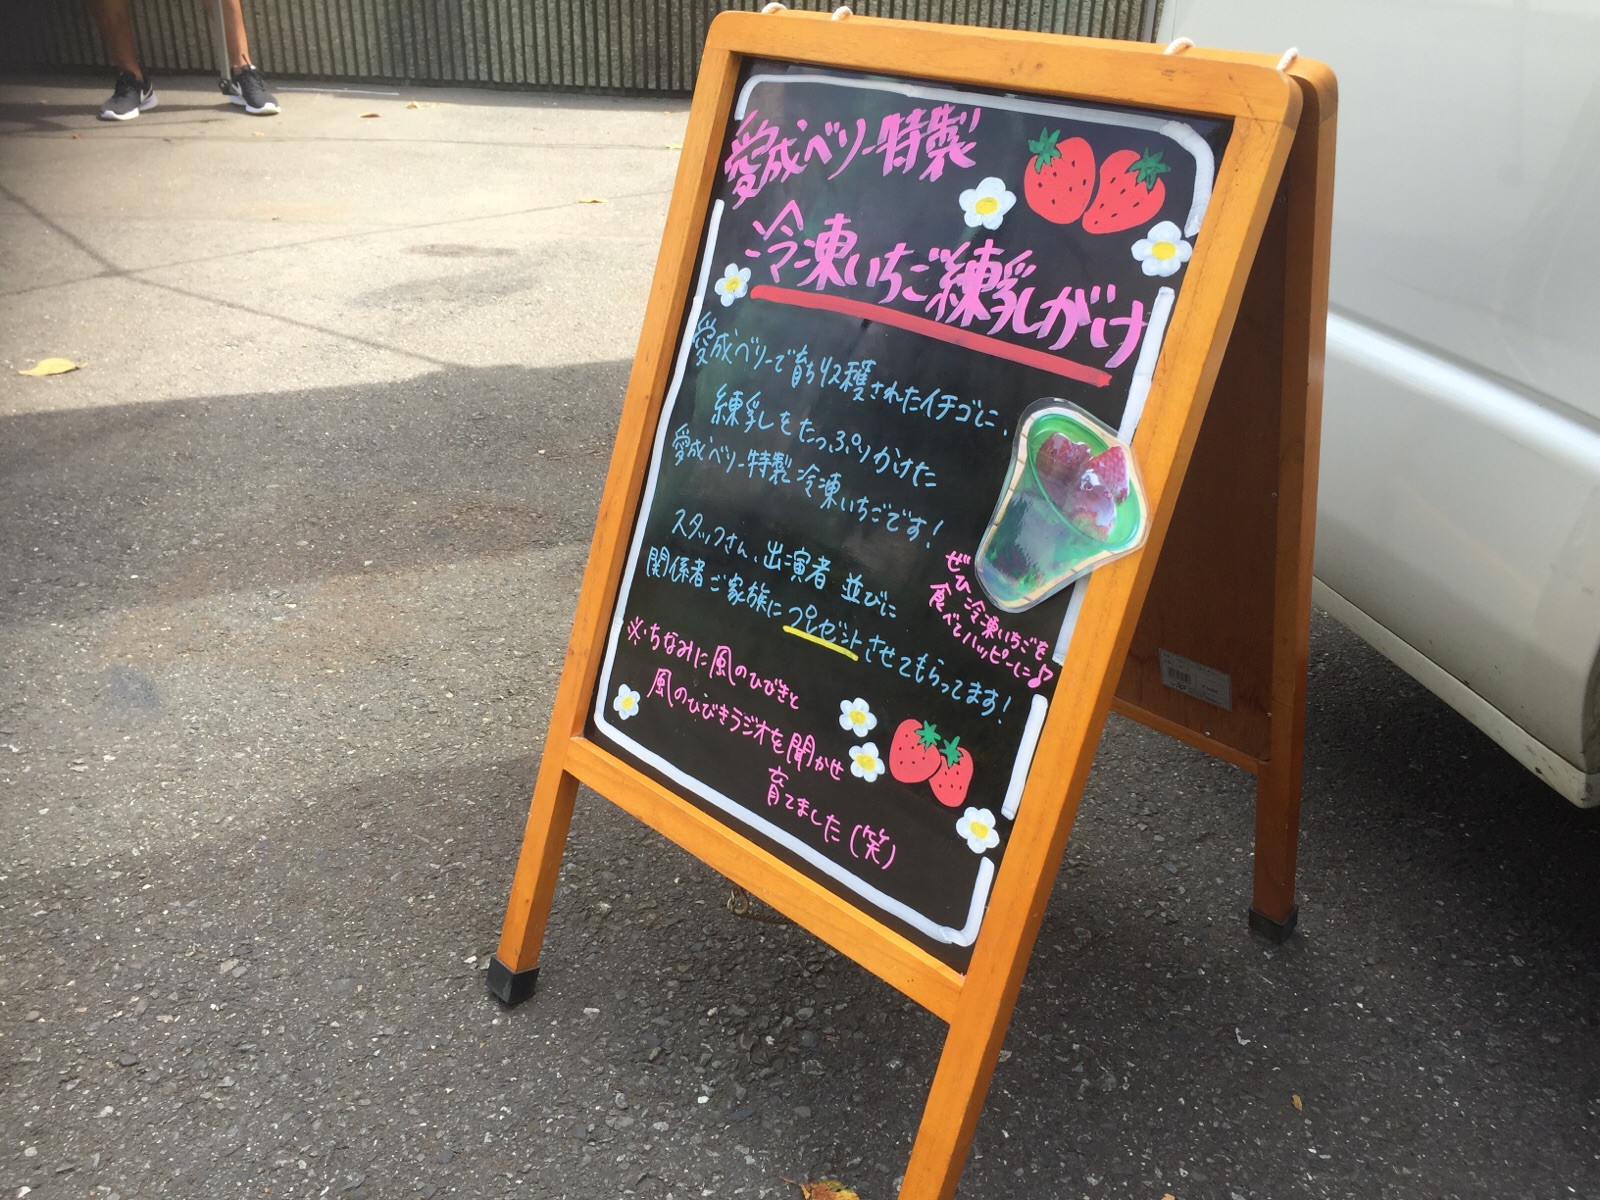 愛成ベリー特製
冷凍いちご練乳がけ
愛成ベリーで育ち収穫されたイチゴに、
練乳をたっぷりかけた
愛成ベリー特製冷凍いちごです!
スタッフさん、出演者 並びに
関係者ご家族にプレゼントさせてもらってます!
ぜひ冷凍いちごを
食べてハッピーに♪
※ちなみに風のひびきと
風のひびきラジオを聞かせ
育てました(笑)